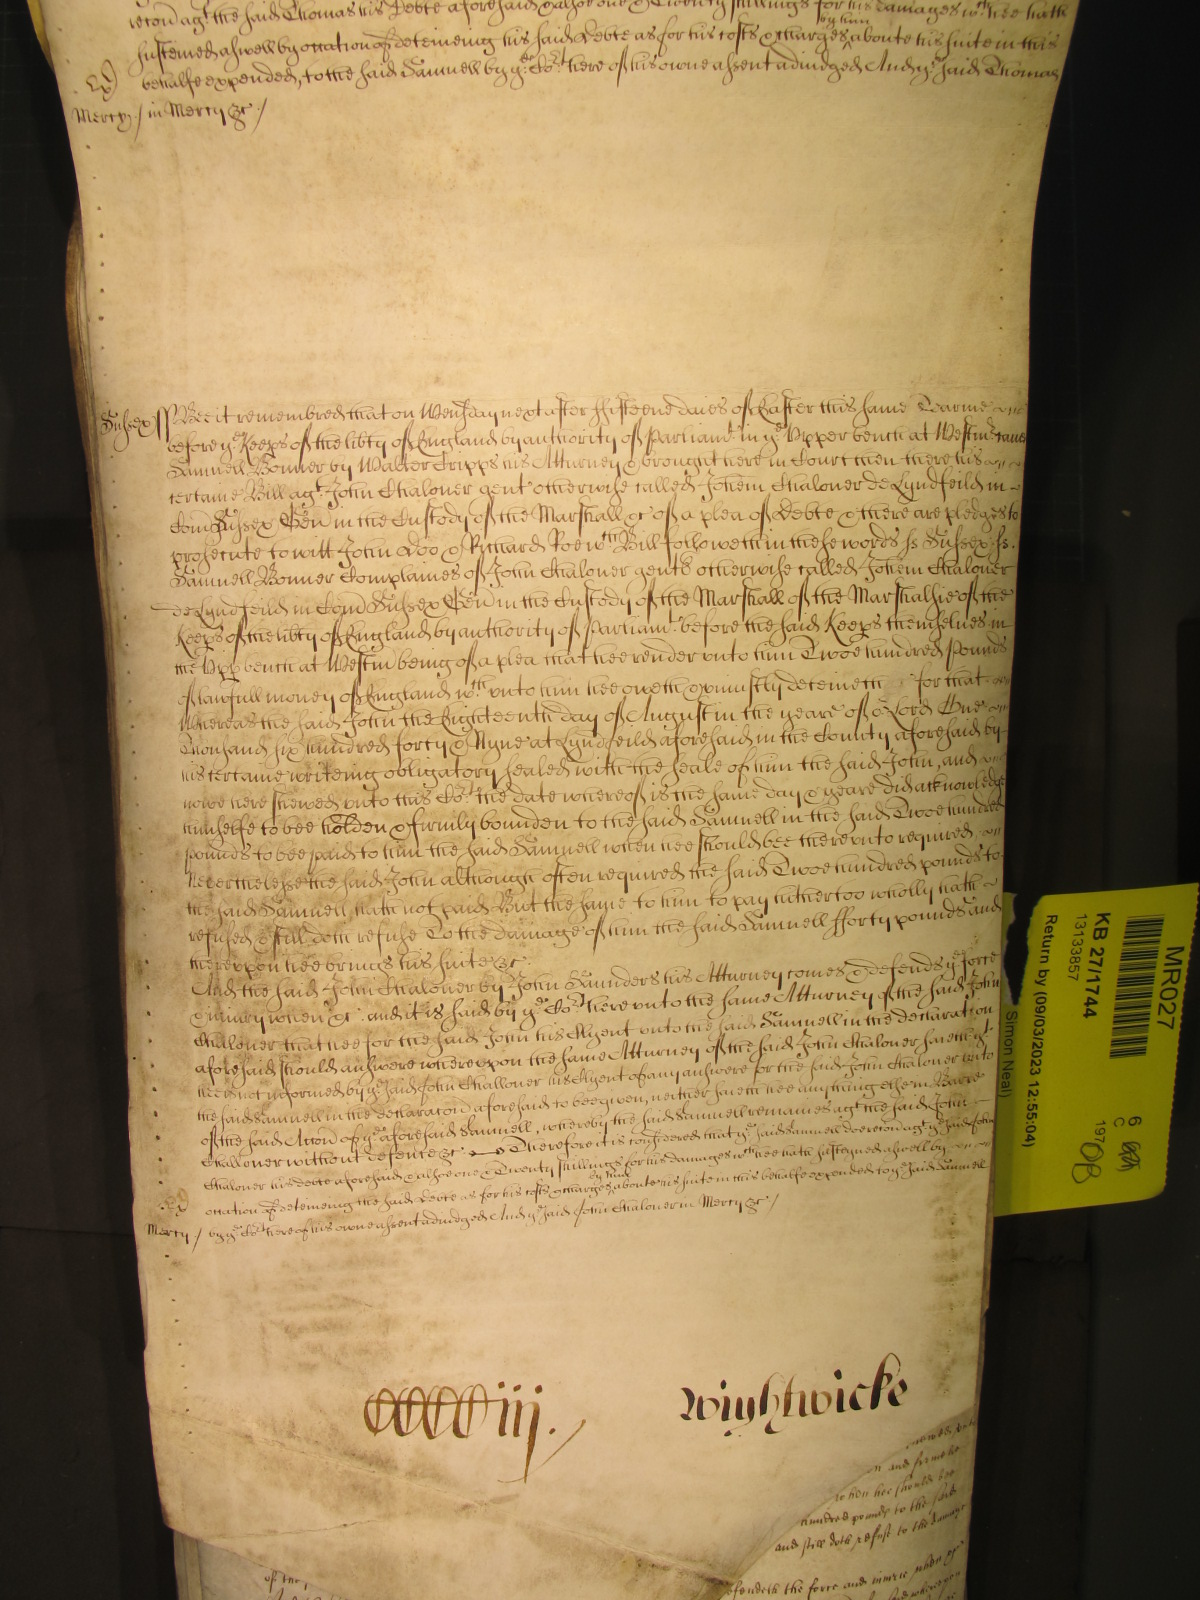 recov<sup>r</sup> ag<sup>t</sup> the said Thomas his Debte aforesaid & alsoe one & Twenty shillings for his damages w<sup>ch</sup> hee hath
susteined aswell by occation of deteineing his said Debte as for his costs & charges by him aboute his suite in this
behalfe expended, to the said Samuell by y<sup>e</sup> Co<sup>rt</sup> here of his owne assent adiudged And y<sup>e</sup> said Thomas
Mercy / in Mercy &c /
Sussex ss Bee it remembred that on Wensday next after ffifteene daies of Easter this same Tearme
before y<sup>e</sup> Keeps of the lib<sup>ty</sup> of England by authority of Parliam<sup>t</sup> in y<sup>e</sup> Upper bench at Westm came
Samuell Bonner by Walter Cripps his Atturney & brought here in Court then there his
certaine Bill ag<sup>t</sup> John Chaloner gent otherwise called Johem Chaloner de Lyndfeild in
Com Sussex Gen in the Custody of the Marshall &c of a plea of Debte & there are pledges to
prosecute to witt John Doo & Richard Roe w<sup>ch</sup> Bill followeth in these words ss Sussex ss.
Samuell Bonner Complaines of John Chaloner gent otherwise called Johem Chaloner
de Lyndfeild in Com Sussex Gen in the Custody of the Marshall of the Marshalsie of the
Keeps of the lib<sup>ty</sup> of England by authority of Parliam<sup>t</sup> before the said Keeps themselues in
the Upp bench at Westm being of a plea that hee render vnto him Twoe hundred Pounds
of lawfull money of England w<sup>ch</sup> vnto him hee oweth & vniustly deteineth for that
Whereas the said John the Eighteenth day of August in the yeare of o<sup>r</sup> Lord One
Thousand six hundred forty & Nyne at Lyndfeild aforesaid in the County aforesaid by
his certaine writeing obligatory sealed with the seale of him the said John, and
nowe here shewed vnto this Co<sup>rt</sup> the date whereof is the same day & yeare did acknowledge
himselfe to bee holden & firmly bounden to the said Samuell in the said Twoe hundred
pounds to bee paid to him the said Samuell when hee should bee therevnto required
Neverthelesse the said John although often required the said Twoe hundred pounds to
the said Samuell hath not paid But the same to him to pay hithertoo wholly hath
refused & still doth refuse To the damage of him the said Samuell fforty pounds and
therevpon hee brings his suite &c.
And the said John Chaloner by John Saunders his Atturney comes & defends y<sup>e</sup> force
& iniury when &c. and it is said by y<sup>e</sup> Co<sup>rt</sup> here vnto the same Atturney of the said John
Chaloner that hee for the said John his Clyent vnto the said Samuell in the declaration
aforesaid should answere wherevpon the same Atturney of the said John Chaloner saieth y<sup>t</sup>
hee is not informed by y<sup>e</sup> said John Challoner his Clyent of any answere for the said John Chaloner vnto
the said Samuell in the declaraton aforesaid to bee given, neither saieth hee anything else in Barre
of the said Accon of y<sup>e</sup> aforesaid Samuell, whereby the said Samuell remaines ag<sup>t</sup> the said John
Challoner without defence &c. Therefore it is considered that y<sup>e</sup> said Samuell doe recov<sup>r</sup> ag<sup>t</sup> y<sup>e</sup> said John
Chaloner his debte aforesaid & alsoe one & Twenty shillings for his damages w<sup>ch</sup> hee hath susteyned aswell by
occation of deteineing the said Debte as for his costs & charges by him aboute his suite in this behalfe expended to y<sup>e</sup> said Samuell
Mercy / by y<sup>e</sup> Co<sup>rt</sup> here of his owne assent adiudged And y<sup>e</sup> said John Chaloner in Mercy &c /
CCCCiij.
Wightwicke
and firmely
when hee should bee
hundred pounds to the said
and still doth refuse to the damage
defendeth the force and iniurie when
MR027
KB 27/1744
13133857
Return by (09/03/2023 12:55:04)
Simon Neal
6
C